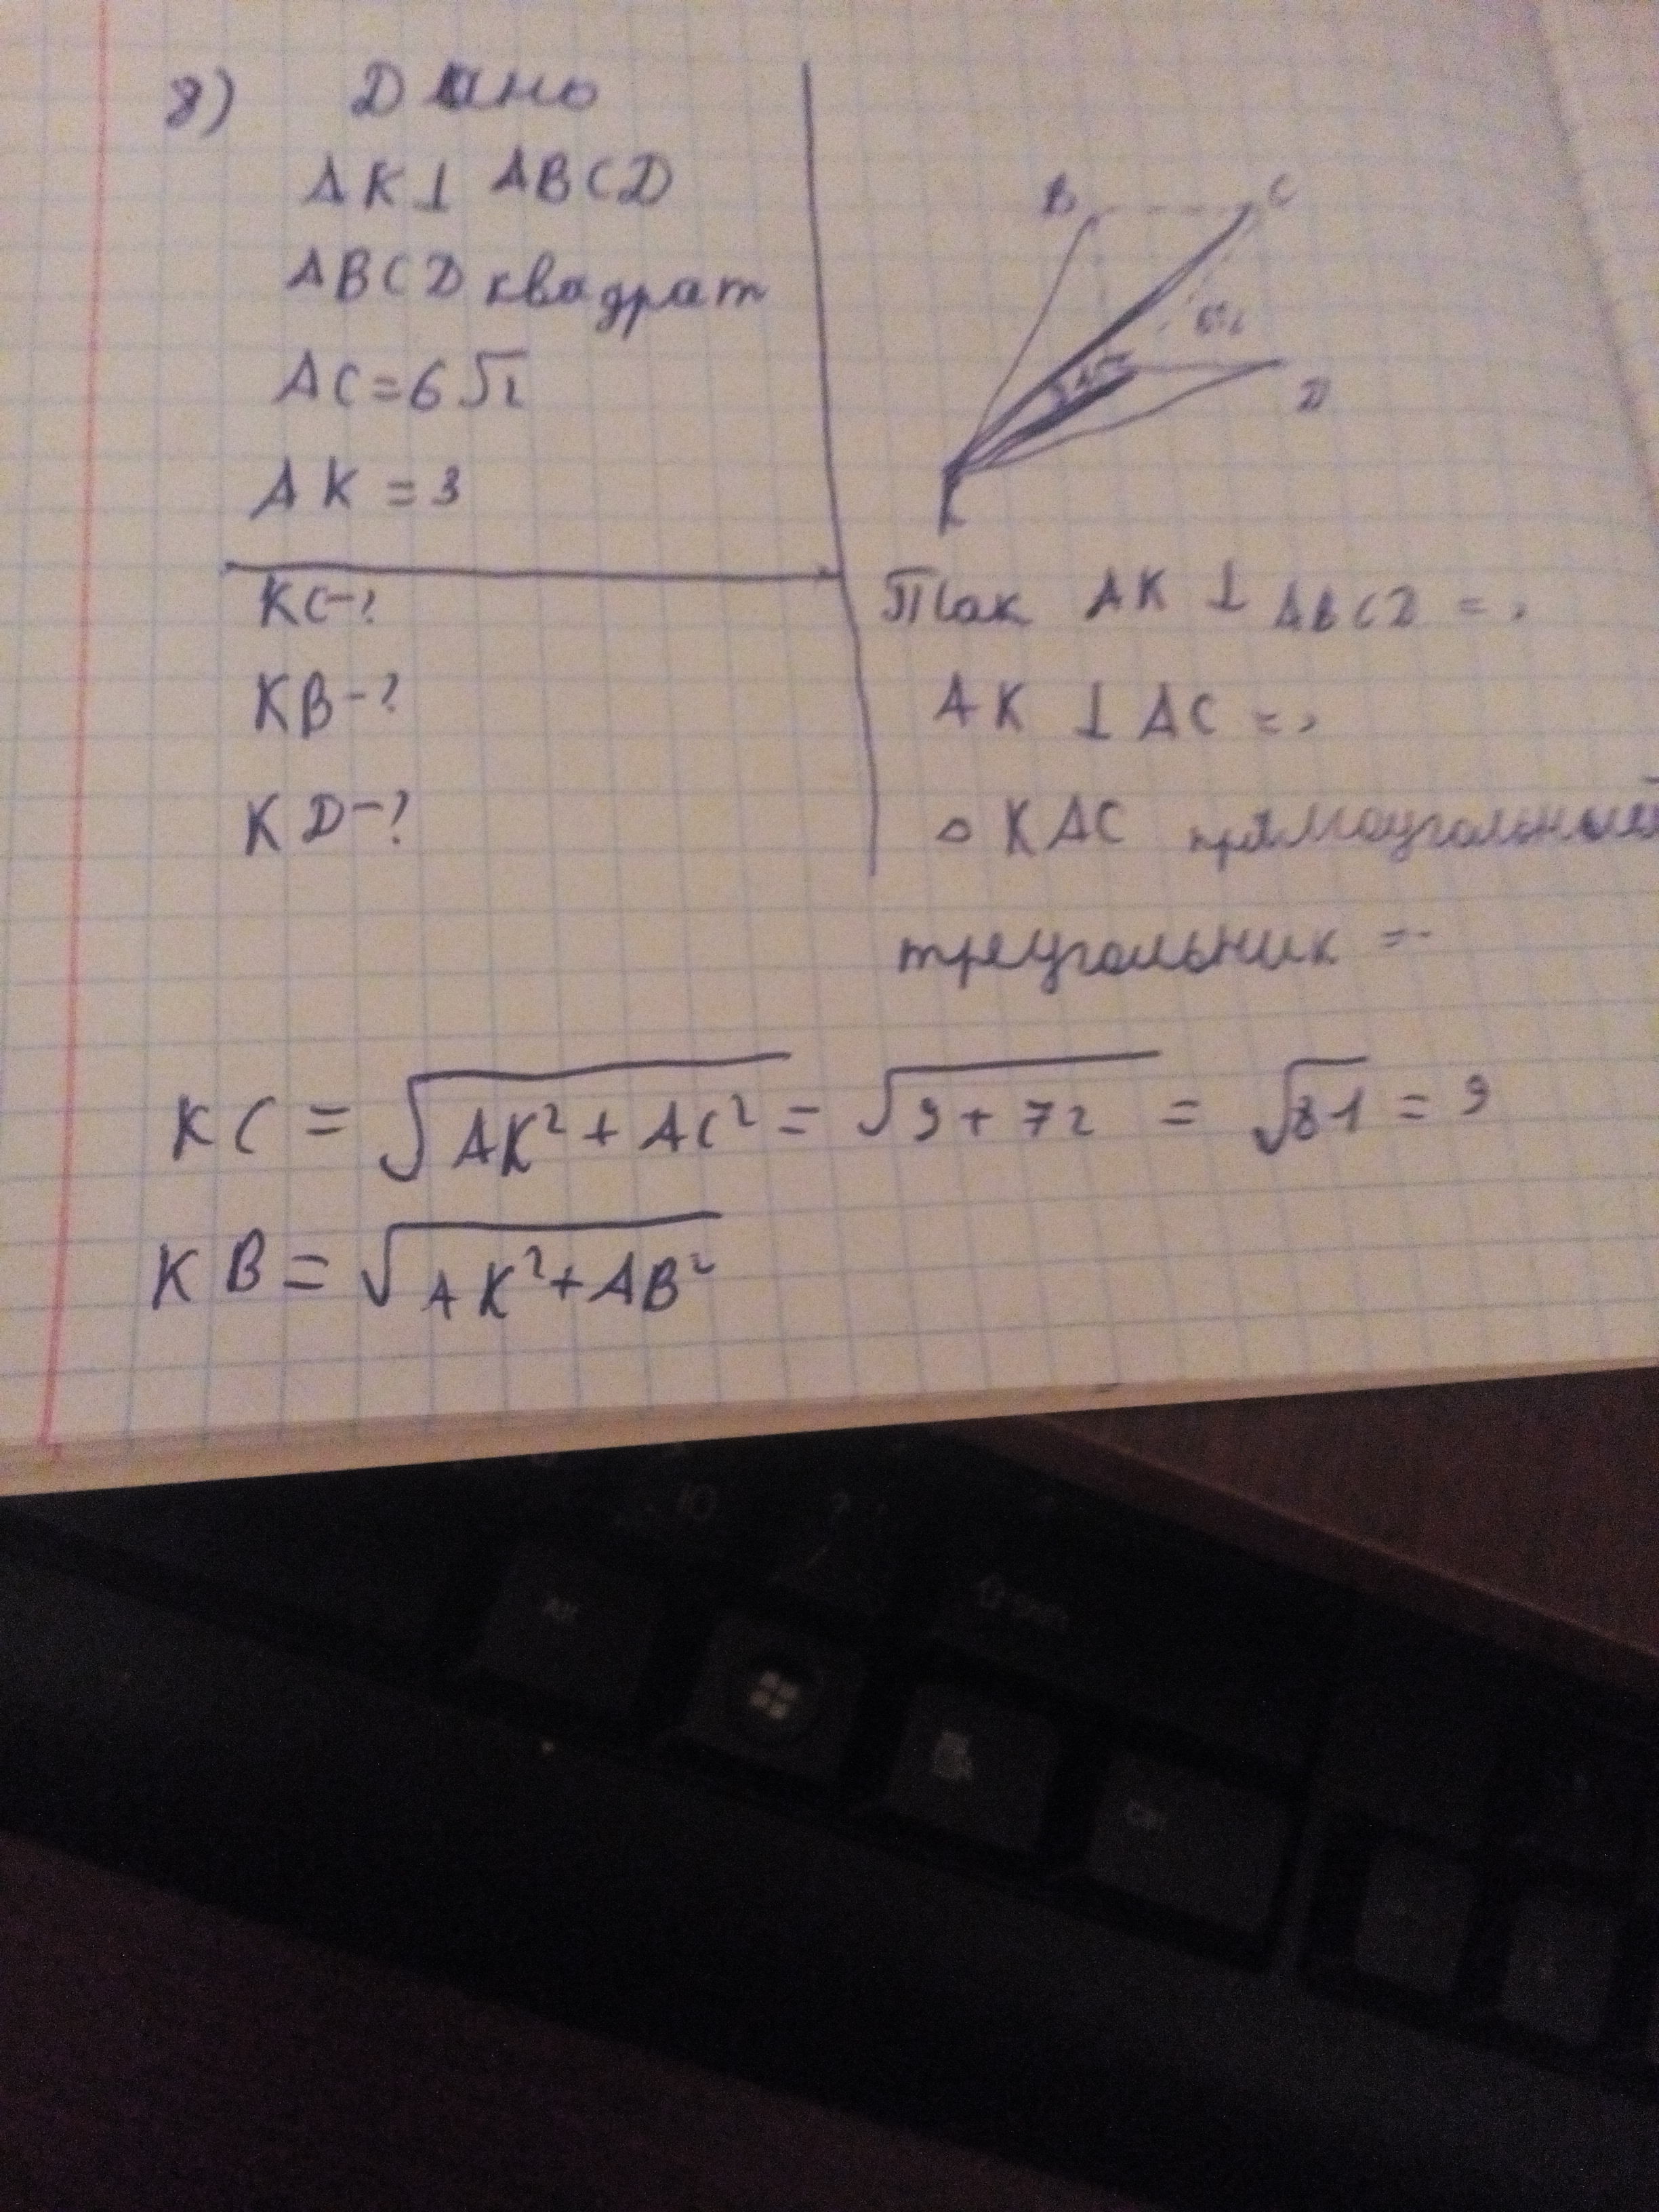 8) Дано
АК⊥ ABCD
ABCD квадрат
AC=6√2
AK=3
KC-?
KB-?
KD-?
B C
6√2
D
K
Так АК ⊥ ABCD =>
АК ⊥ АС =>
△ КАС прямоугольный
треугольник =>
KC = √AK²+AC² = √9+72 = √81 = 9
KB = √AK²+AB²
Alt